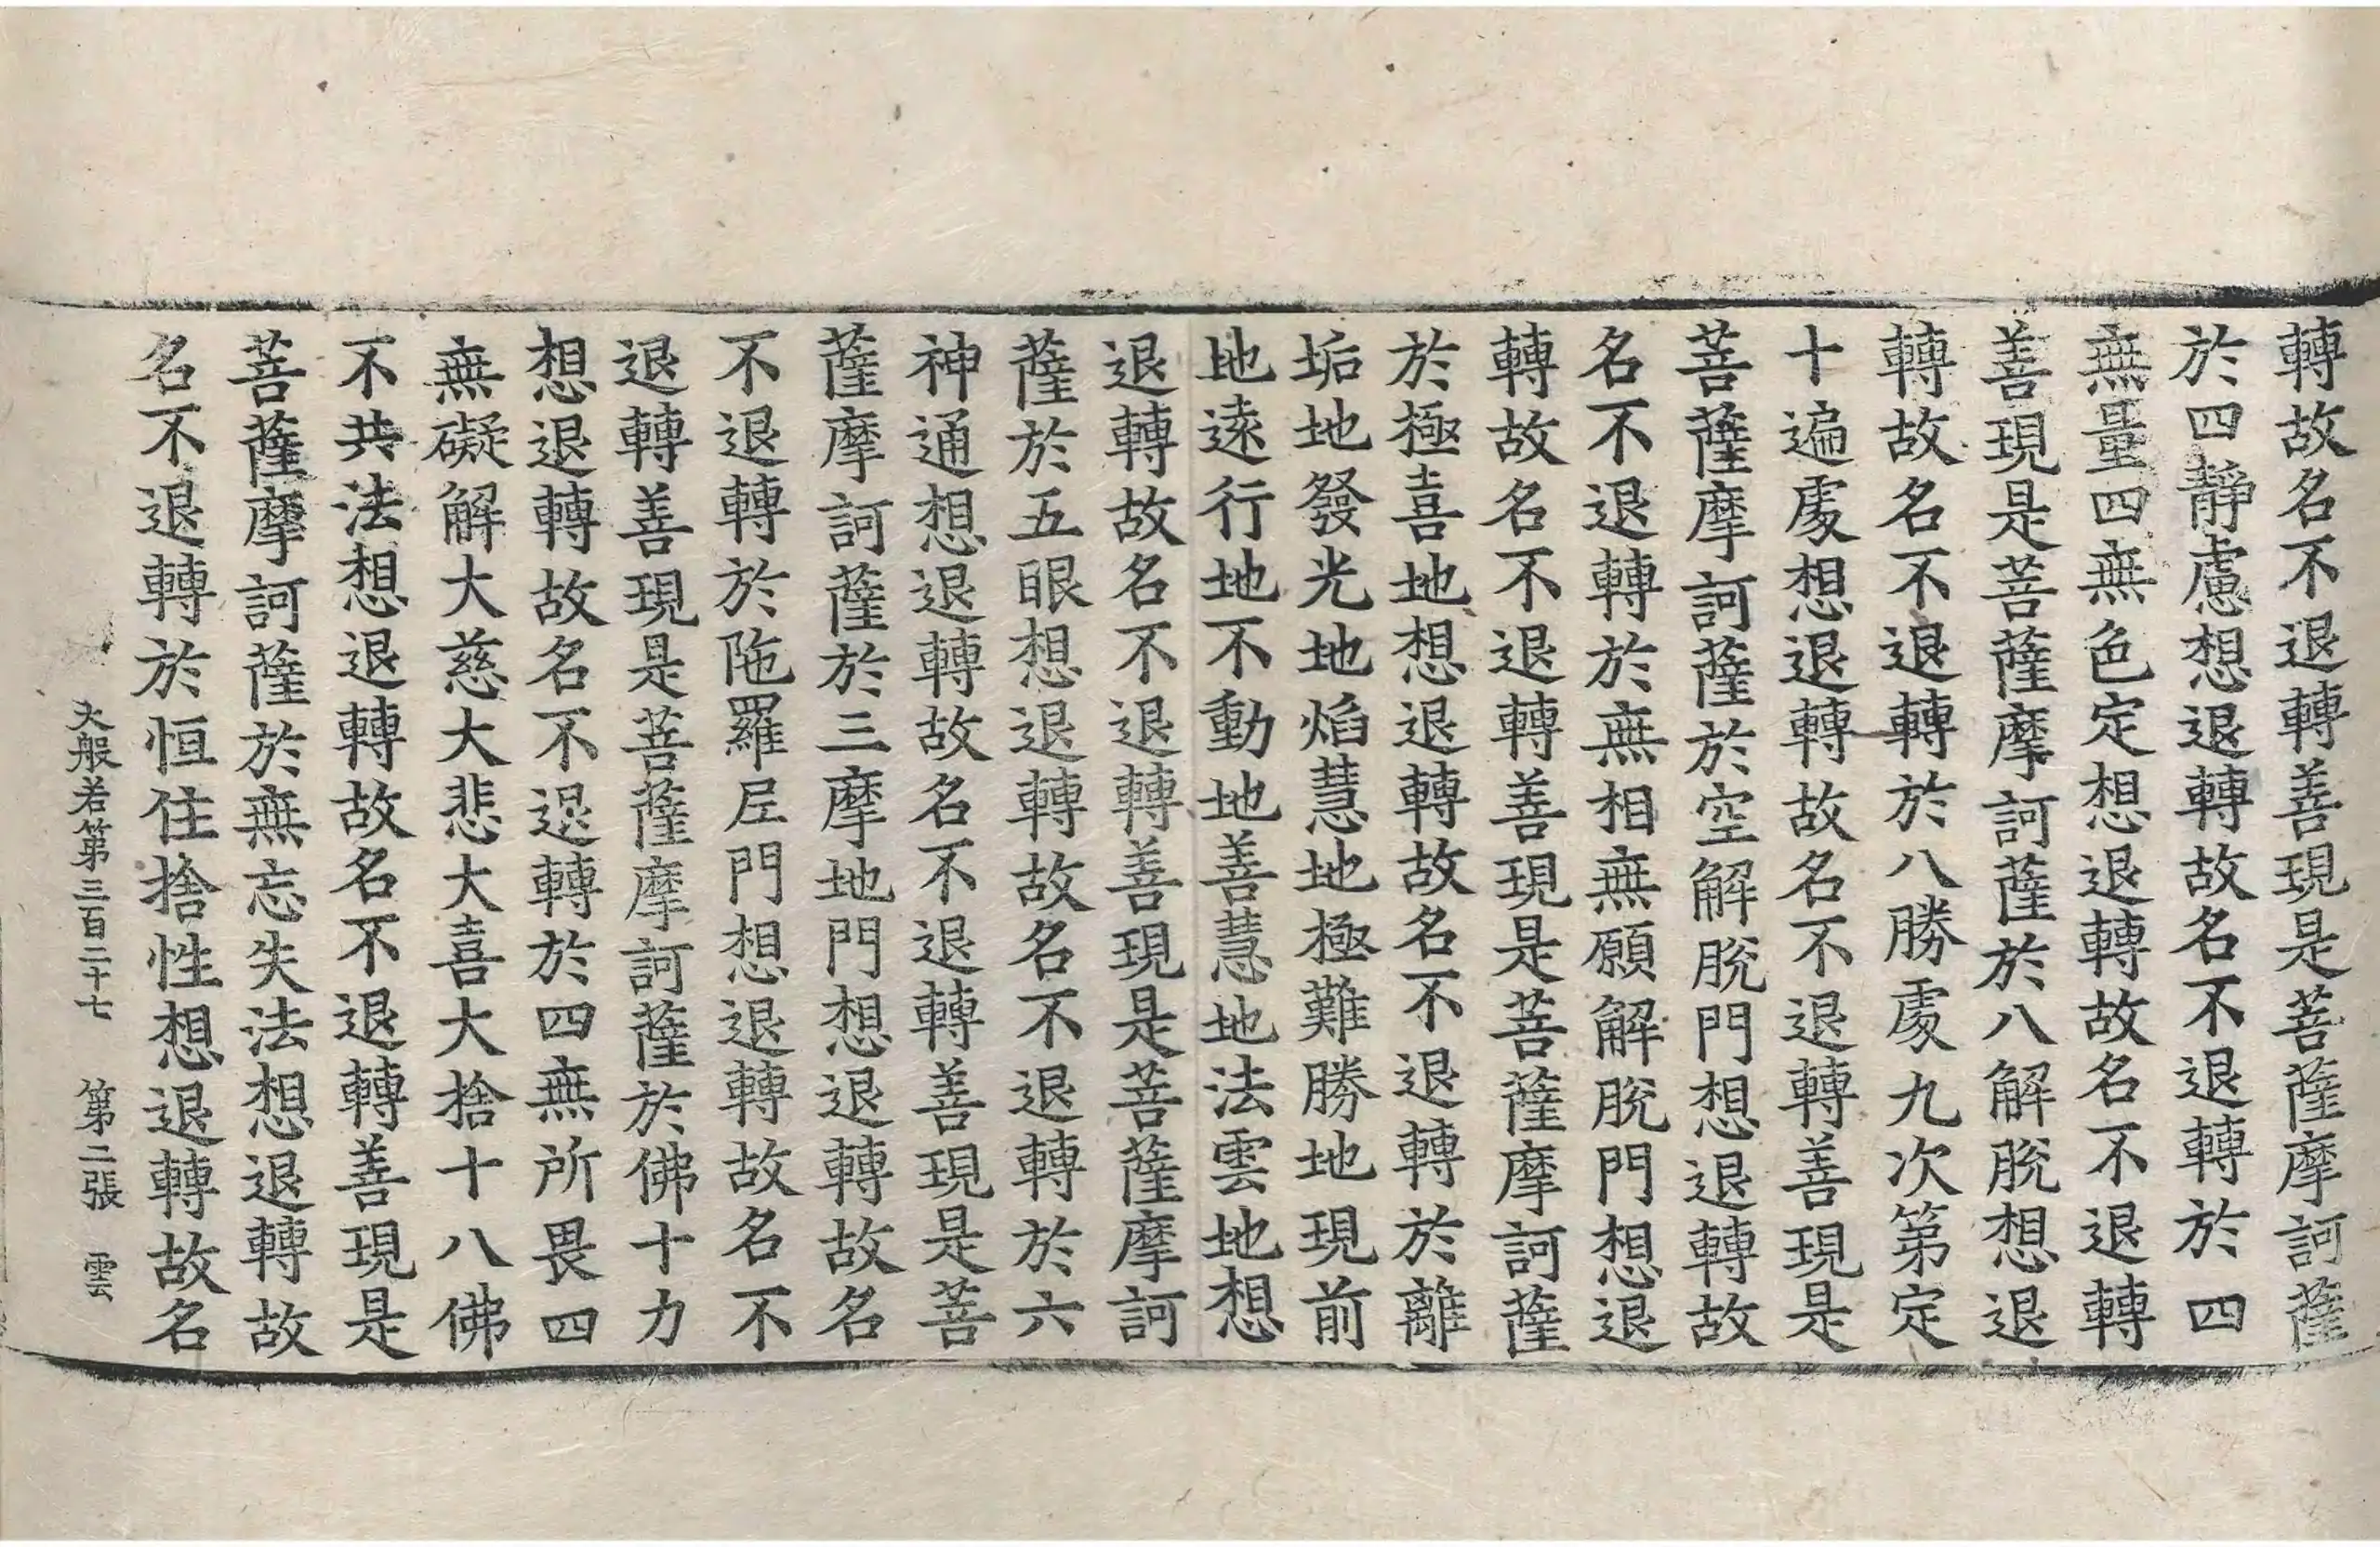 轉故名不退轉善現是菩薩摩訶薩
於四靜慮想退轉故名不退轉於四
無量四無色定想退轉故名不退轉
善現是菩薩摩訶薩於八解脫想退
轉故名不退轉於八勝處九次第定
十遍處想退轉故名不退轉善現是
菩薩摩訶薩於空解脫門想退轉故
名不退轉於無相無願解脫門想退
轉故名不退轉善現是菩薩摩訶薩
於極喜地想退轉故名不退轉於離
垢地發光地焰慧地極難勝地現前
地遠行地不動地善慧地法雲地想
退轉故名不退轉善現是菩薩摩訶
薩於五眼想退轉故名不退轉於六
神通想退轉故名不退轉善現是菩
薩摩訶薩於三摩地門想退轉故名
不退轉於陁羅尼門想退轉故名不
退轉善現是菩薩摩訶薩於佛十力
想退轉故名不退轉於四無所畏四
無礙解大慈大悲大喜大捨十八佛
不共法想退轉故名不退轉善現是
菩薩摩訶薩於無忘失法想退轉故
名不退轉於恒住捨性想退轉故名
大般若第三百二十七 第二張 雲